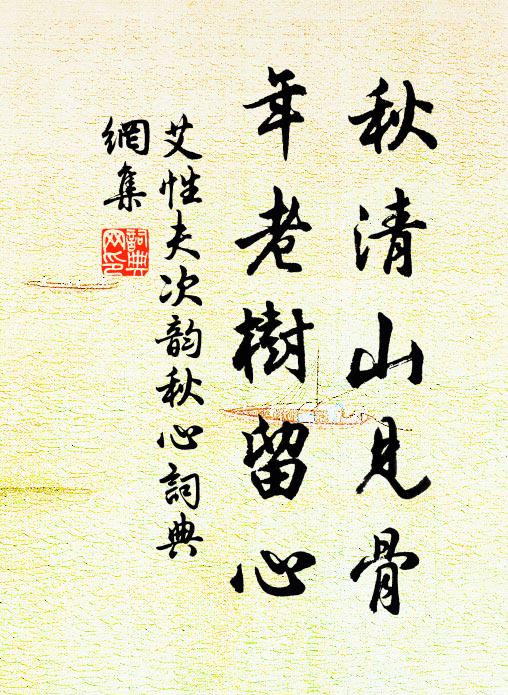 秋清山見骨
年老樹留心
艾性夫次韵秋心詞典
網集
詞典
网印